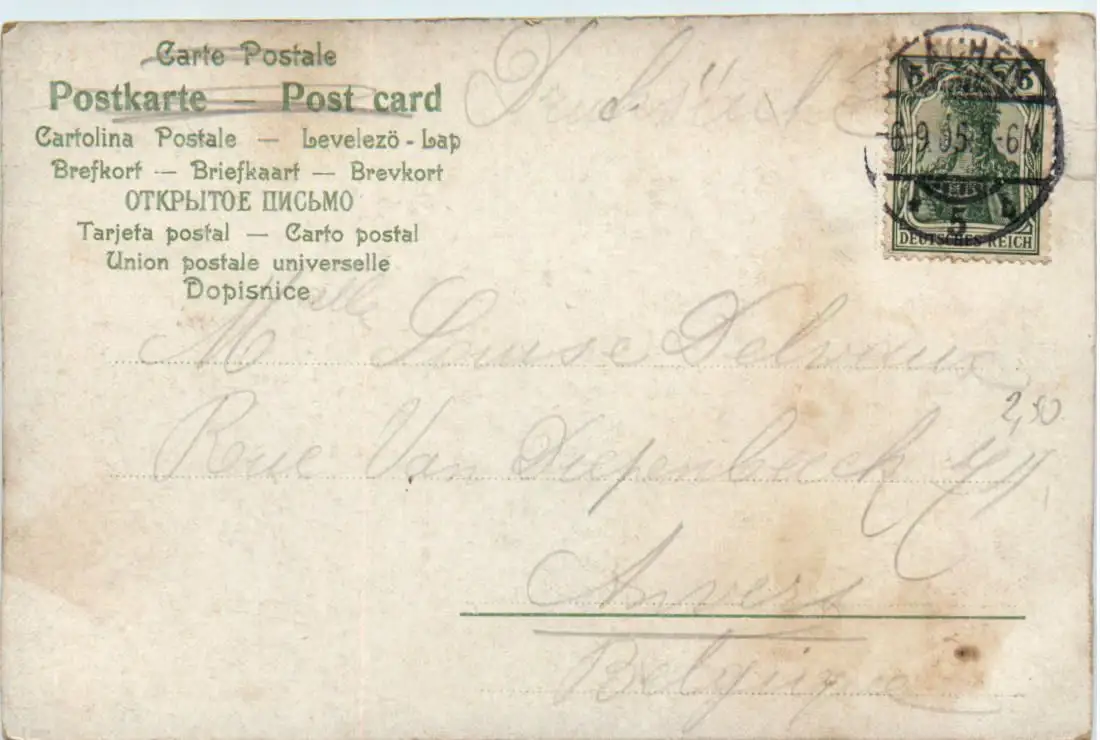 Carte Postale
Postkarte – Post card
Cartolina Postale — Levelezö-Lap
Brefkort — Briefkaart — Brevkort
ОТКРЫТОЕ ПИСЬМО
Tarjeta postal — Carto postal
Union postale universelle
Dopisnice
5 5
6.9.05 5-6N
5
DEUTSCHES REICH
Melle Louise Delvaux
2,50
Rue Van Diepenbeeck
Anvers
Belgique